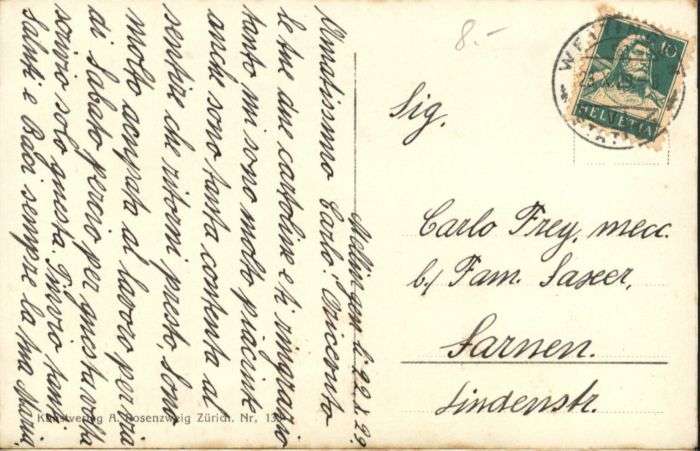 Mellingen li 22. X. 29.
Amatissimo Carlo! Ricevuto
le tue due cartoline e ti ringrazio
tanto mi sono molto piaciute
anche sono tanta contenta al
sentire che ritorni presto, Sono
molto acupata al lavoro per via
di Sabato percio per questa volta
scrivio solo questa T'invio tanti
Saluti e Baci sempre la tua Maria
8.-
10
HELVETIA
Sig.
Carlo Frey, mecc.
b/ Fam. Saxer,
Sarnen.
Lindenstr.
Kunstverlag A. Rosenzweig Zürich. Nr.